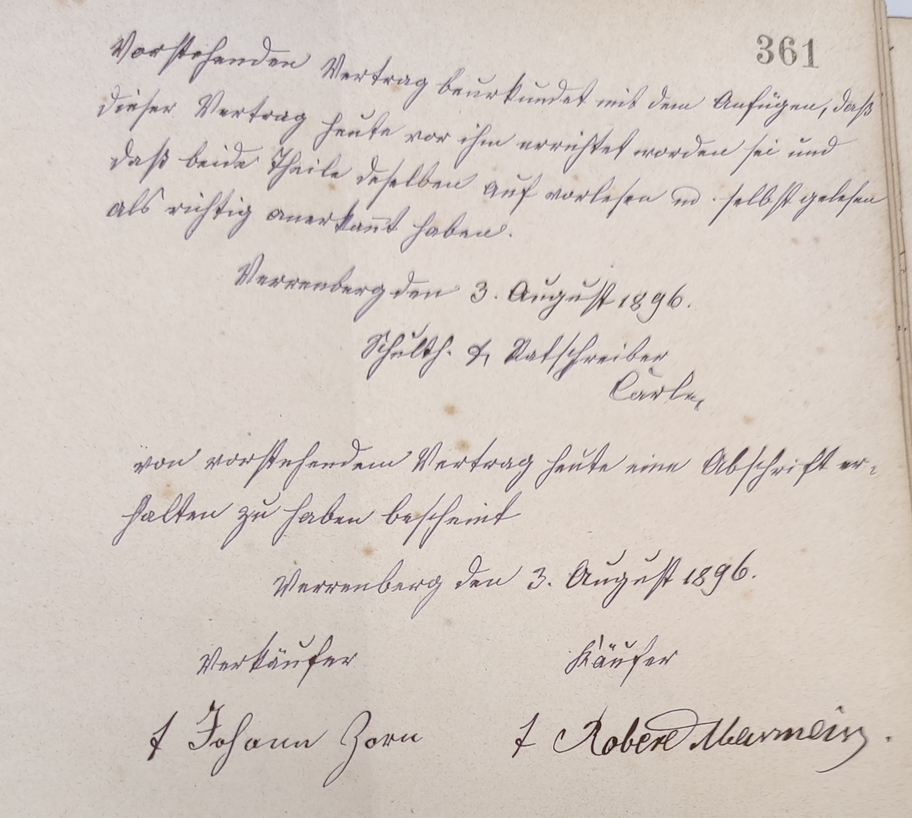 361
Vorstehenden Vertrag beurkundet mit dem Anfügen, daß
dieser Vertrag heute vor ihm errichtet worden sei und
daß beide Theile deselben auf vorlesen u. selbst gelesen
als richtig anerkan̄t haben.
Verrenberg den 3. August 1896.
Schulth. & Ratschreiber
Carle,
von vorstehendem Vertrag heute eine Abschrift er-
halten zu haben bescheint
Verrenberg den 3. August 1896.
Verkäufer Käufer
† Johann Zorn † Robert